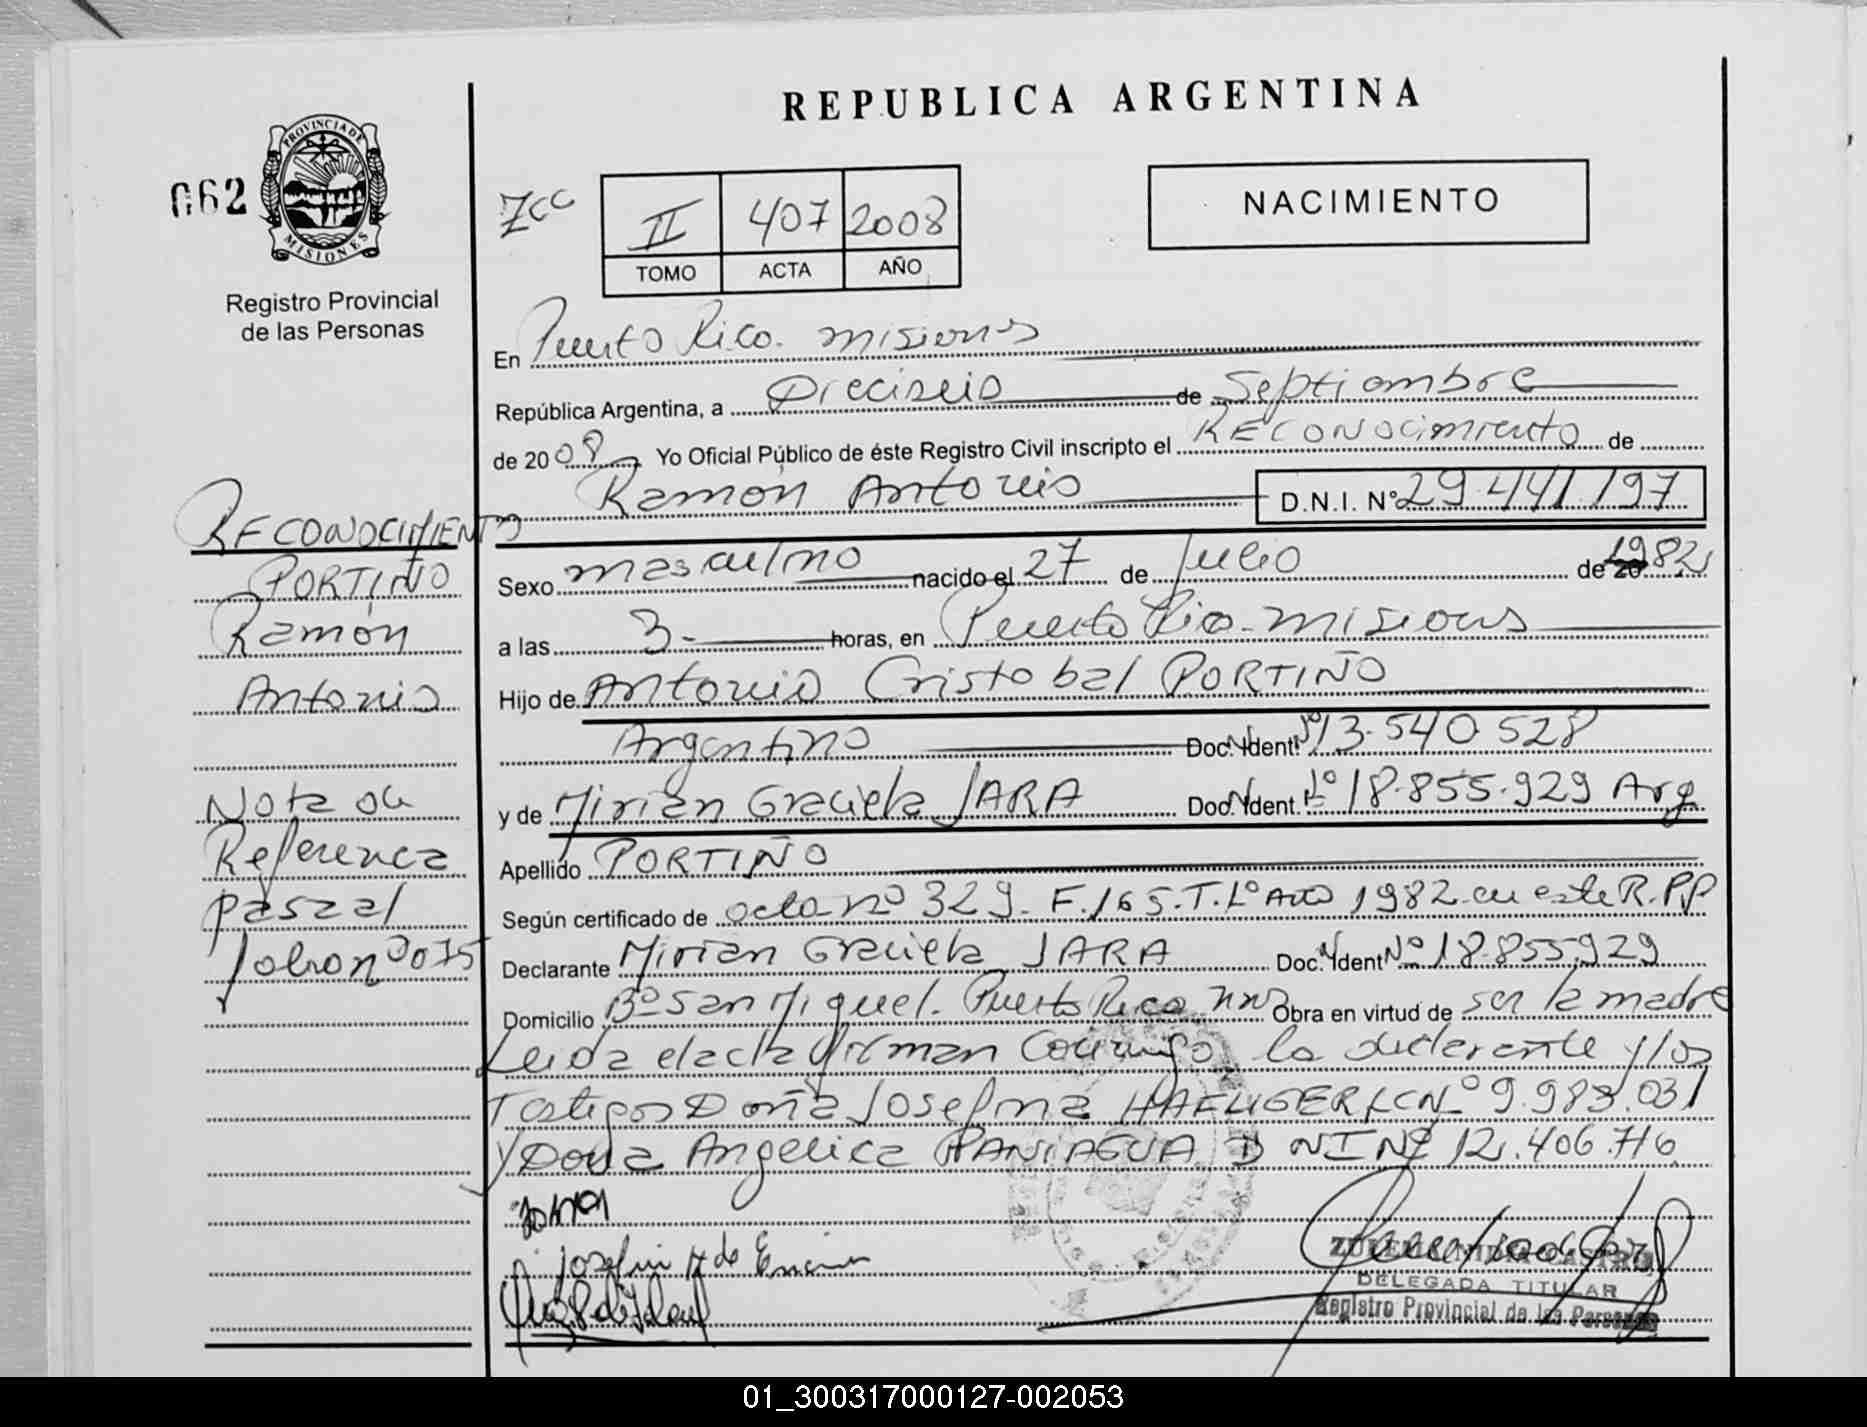 REPUBLICA ARGENTINA
062
PROVINCIA DE
MISIONES
Registro Provincial
de las Personas
II 407 2008
TOMO ACTA AÑO
NACIMIENTO
En Puerto Rico. Misiones
República Argentina, a Dieciseis de Septiembre
de 2008 Yo Oficial Público de éste Registro Civil inscripto el RECONOCIMIENTO de
Ramón Antonio D.N.I. Nº 29.441.197
Sexo masculino nacido el 27 de Julio de 1982
a las 3.- horas, en Puerto Rico-Misiones
Hijo de Antonio Cristobal PORTIÑO
Argentino Doc. Ident. Nº 13.540.528
y de Mirian Graciela JARA Doc. Ident. Nº 18.855.929 Arg
Apellido PORTIÑO
Según certificado de acta nº 329. F.165.T.1º Año 1982 en este R.PP
Declarante Mirian Graciela JARA Doc. Ident Nº 18.855.929
Domicilio Bº San Miguel. Puerto Rico Obra en virtud de ser la madre
Leida el acta firman conmigo la declarante y los
Testigos Doña Josefina Nº 9.983.031
y Doña Angelica PANIAGUA DNI Nº 12.406.716
RECONOCIMIENTO
PORTIÑO
Ramón
Antonio
Nota de
Referencia
pasa al
folio nº 075
DELEGADA TITULAR
Registro Provincial de las Personas
01_300317000127-002053